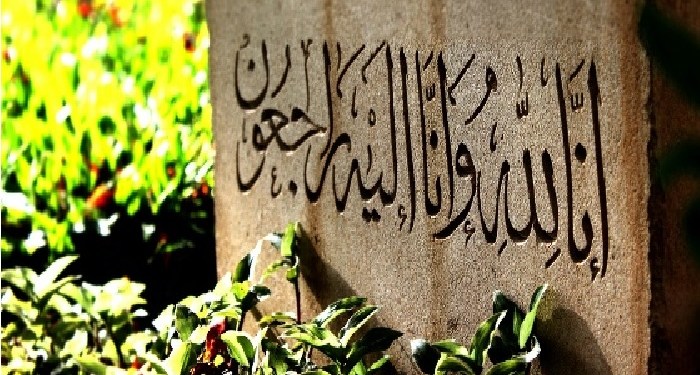 إنَّا لِلّهِ وَإنَّا إليْهِ رَاجعُون